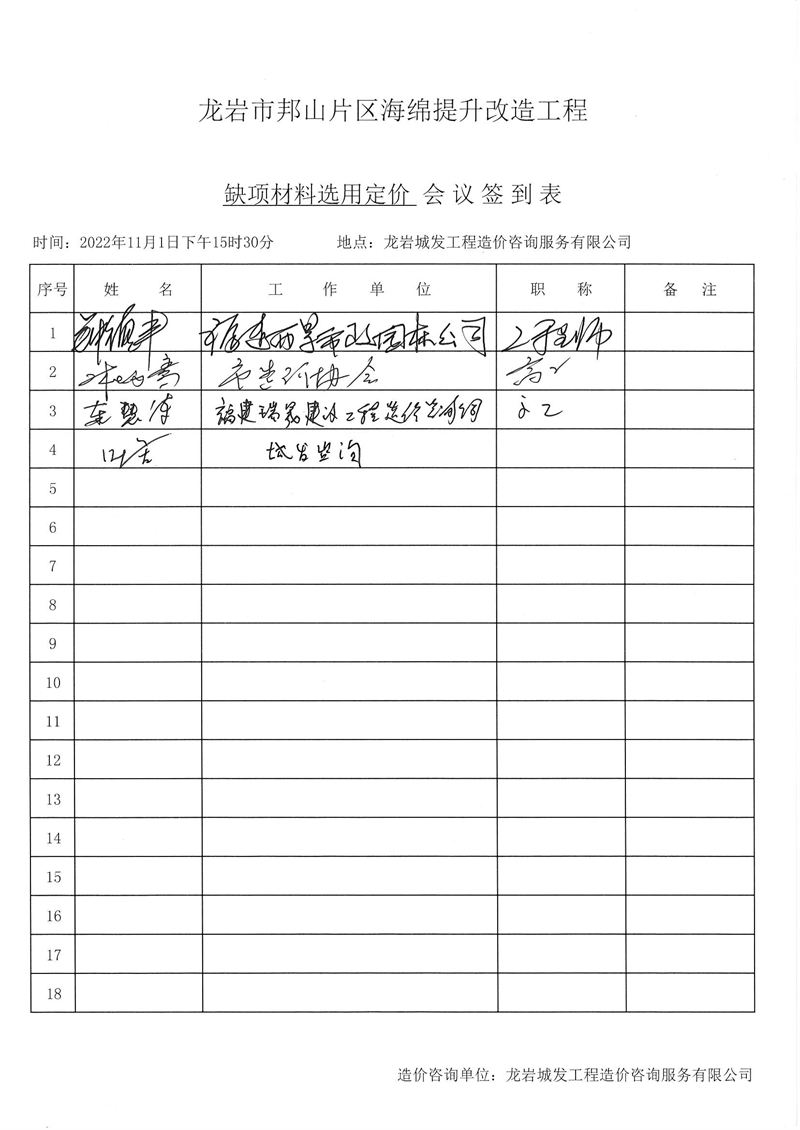 龙岩市邦山片区海绵提升改造工程
缺项材料选用定价 会 议 签 到 表
时间：2022年11月1日下午15时30分 地点：龙岩城发工程造价咨询服务有限公司
序号 姓 名 工 作 单 位 职 称 备 注
1 市政园林公司 工程师
2 市造价协会 高工
3 福建瑞晟建设工程造价咨询 高工
4 城发咨询
5
6
7
8
9
10
11
12
13
14
15
16
17
18
造价咨询单位：龙岩城发工程造价咨询服务有限公司